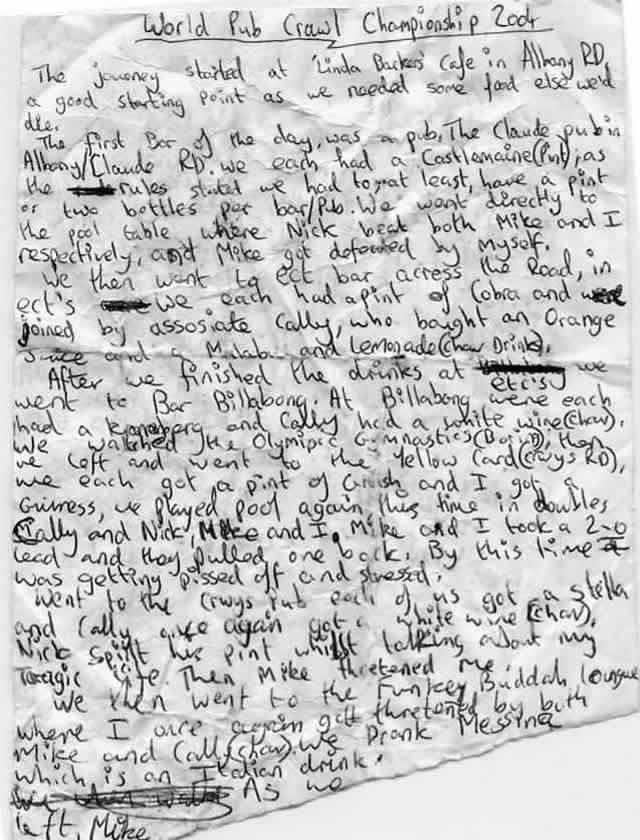 World Pub Crawl Championship 2004
The journey started at 'Linda Barkers' Cafe in Albany RD,
a good starting point as we needed some food else we'd
die.
The first Bar of the day, was a pub, The Claude pub in
Albany/Claude RD. we each had a Castlemaine (Pint), as
the rules stated we had to, at least, have a pint
or two bottles per bar/Pub. We went directly to
the pool table where Nick beat both Mike and I
respectively, and Mike got defeated by myself.
We then went to ect bar across the Road, in
ect's we each had a pint of Cobra and were
joined by assosiate Cally, who bought an Orange
Juice and a Malabu and Lemonade (Chav Drink).
After we finished the drinks at etc's, we
went to Bar Billabong. At Billabong were each
had a kronenberg and Cally had a white wine (chav).
We watched the Olymipic Gymnastics (Boring), then
we left and went to the Yellow Card (crwys RD),
we each got a pint of and I got a
Guinness, we played pool again this time in doubles
Cally and Nick, Mike and I, Mike and I took a 2-0
lead and they pulled one back. By this time I
was getting pissed off and stressed.
Went to the Crwys Pub each of us got a stella
and Cally once again got a white wine (chav).
Nick spilt his pint whilst talking about my
Tragic life. Then Mike thretened me.
We then went to the Funkey Buddah loungue
where I once again got thretoned by both
Mike and Cally (chav). We Drank Messina
which is an Italian drink.
We then As no
left, Mike